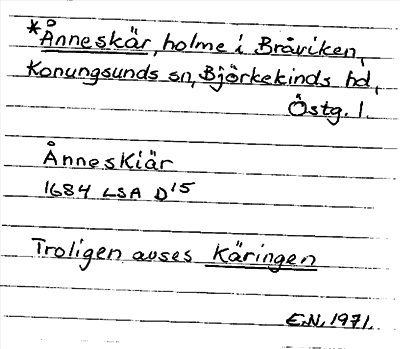 *Ånneskär, holme i Bråviken,
Konungsunds sn, Björkekinds hd,
Östg. l.
Ånneskiär
1684 LSA D15
Troligen avses Käringen
E.N. 1971.